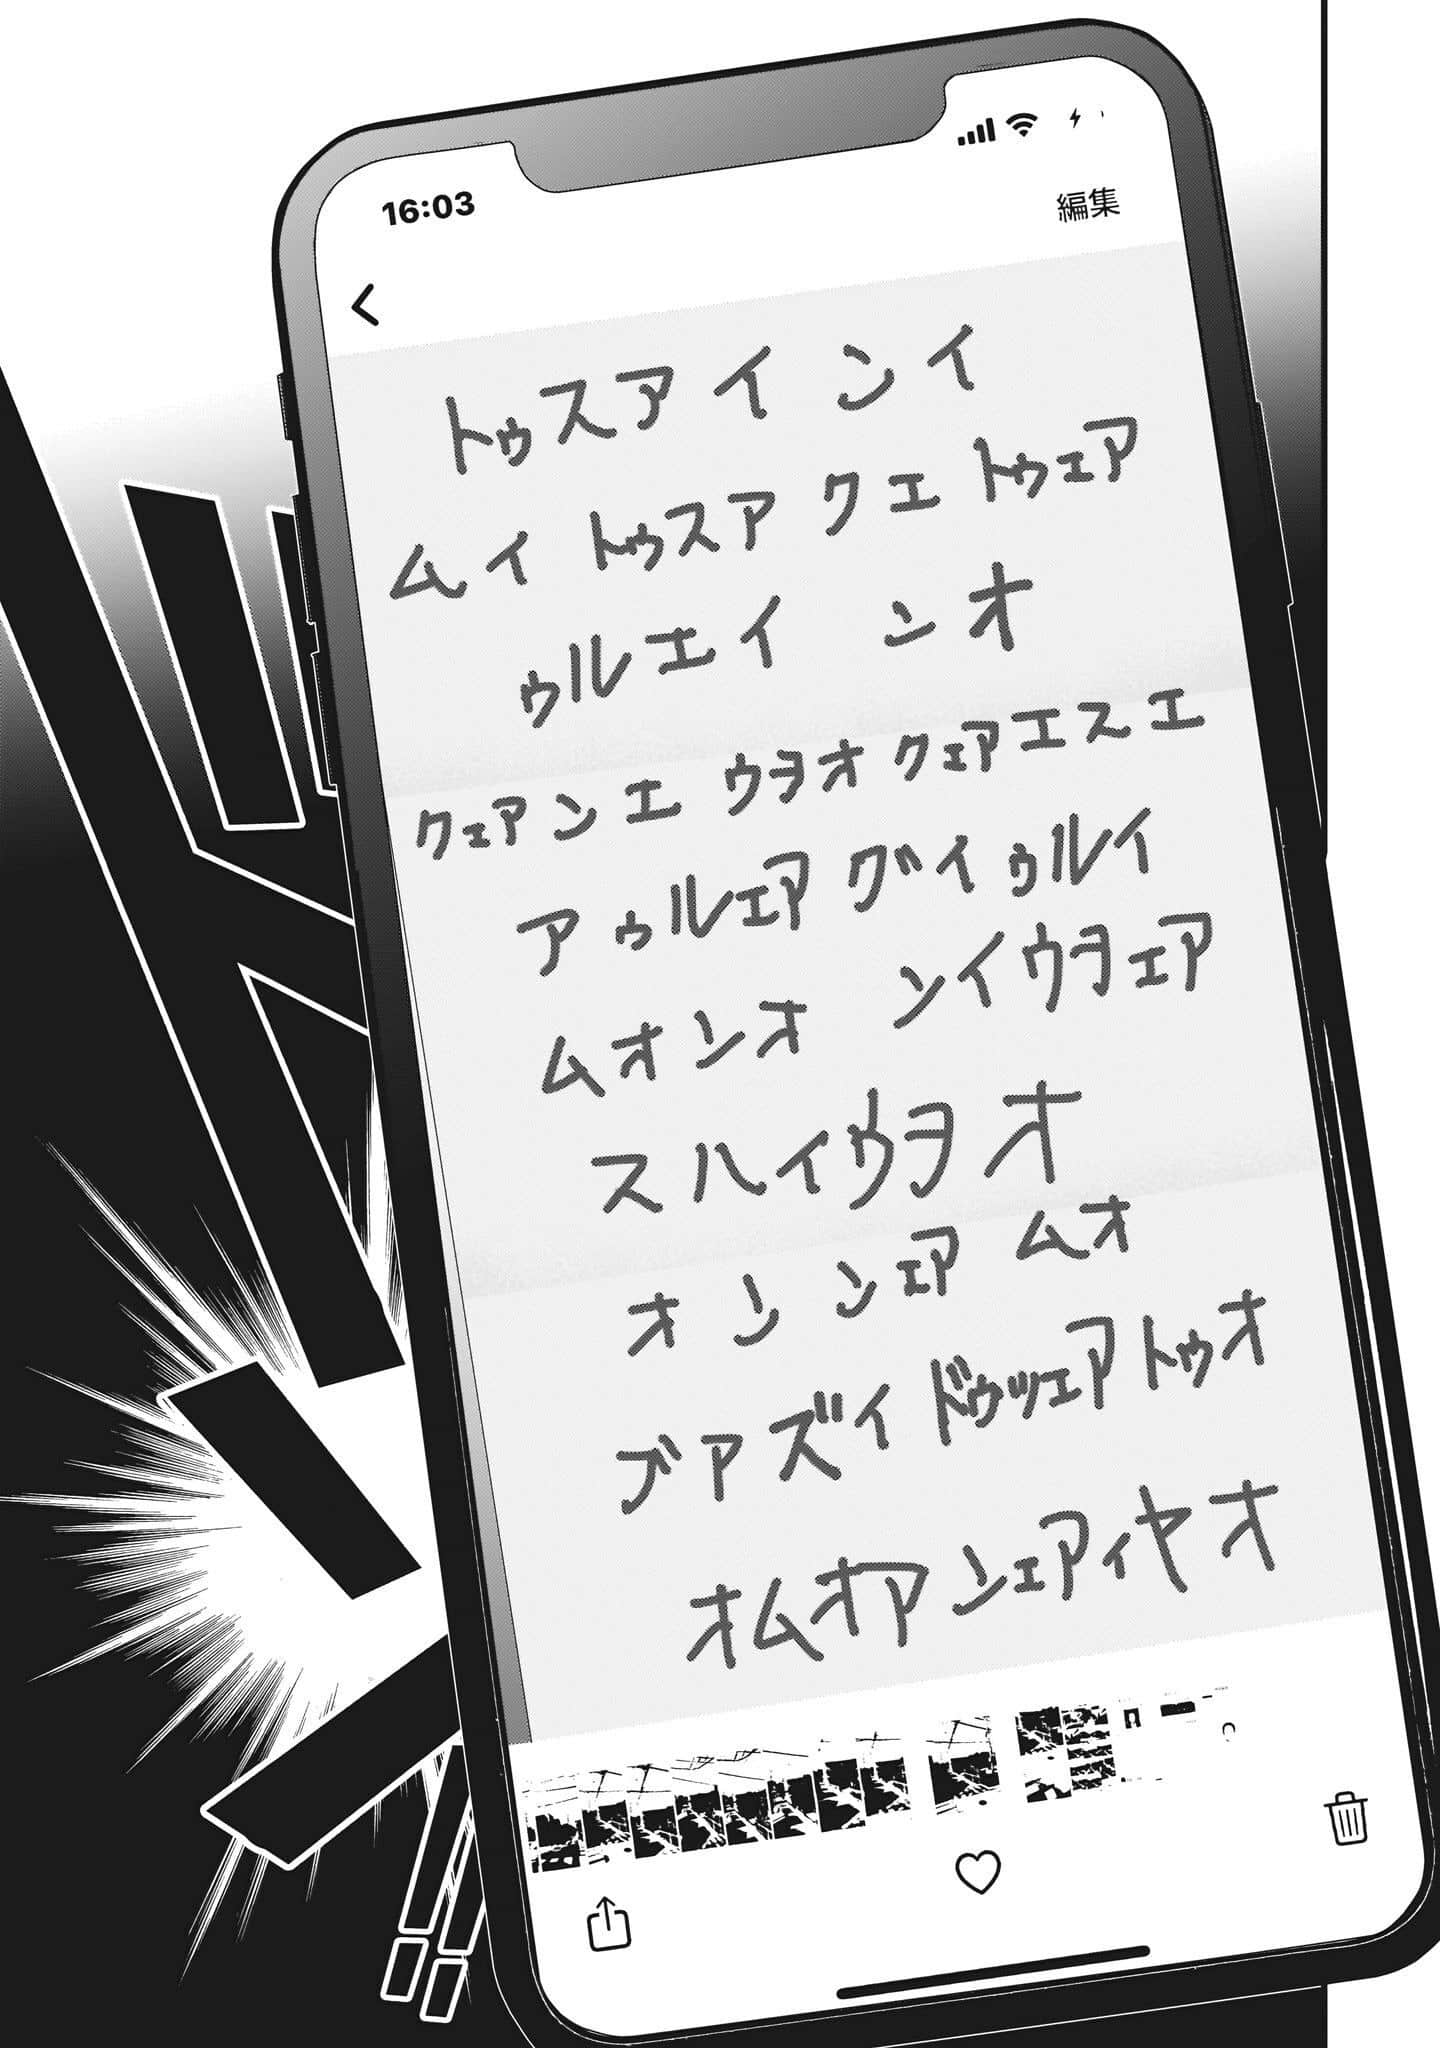 16:03
編集
トゥスアイ ンイ
ムイ トゥスア クエ トゥェア
ゥルエイ ンオ
クェアンエ ウヲオ クェアエスエ
ア ゥルェア グイ ゥルイ
ムオンオ ンイウヲェア
スハイウヲオ
オン ンェア ムオ
ブァ ズイ ドゥッェア トゥオ
オムオア ンェアィヤオ
ドン!!